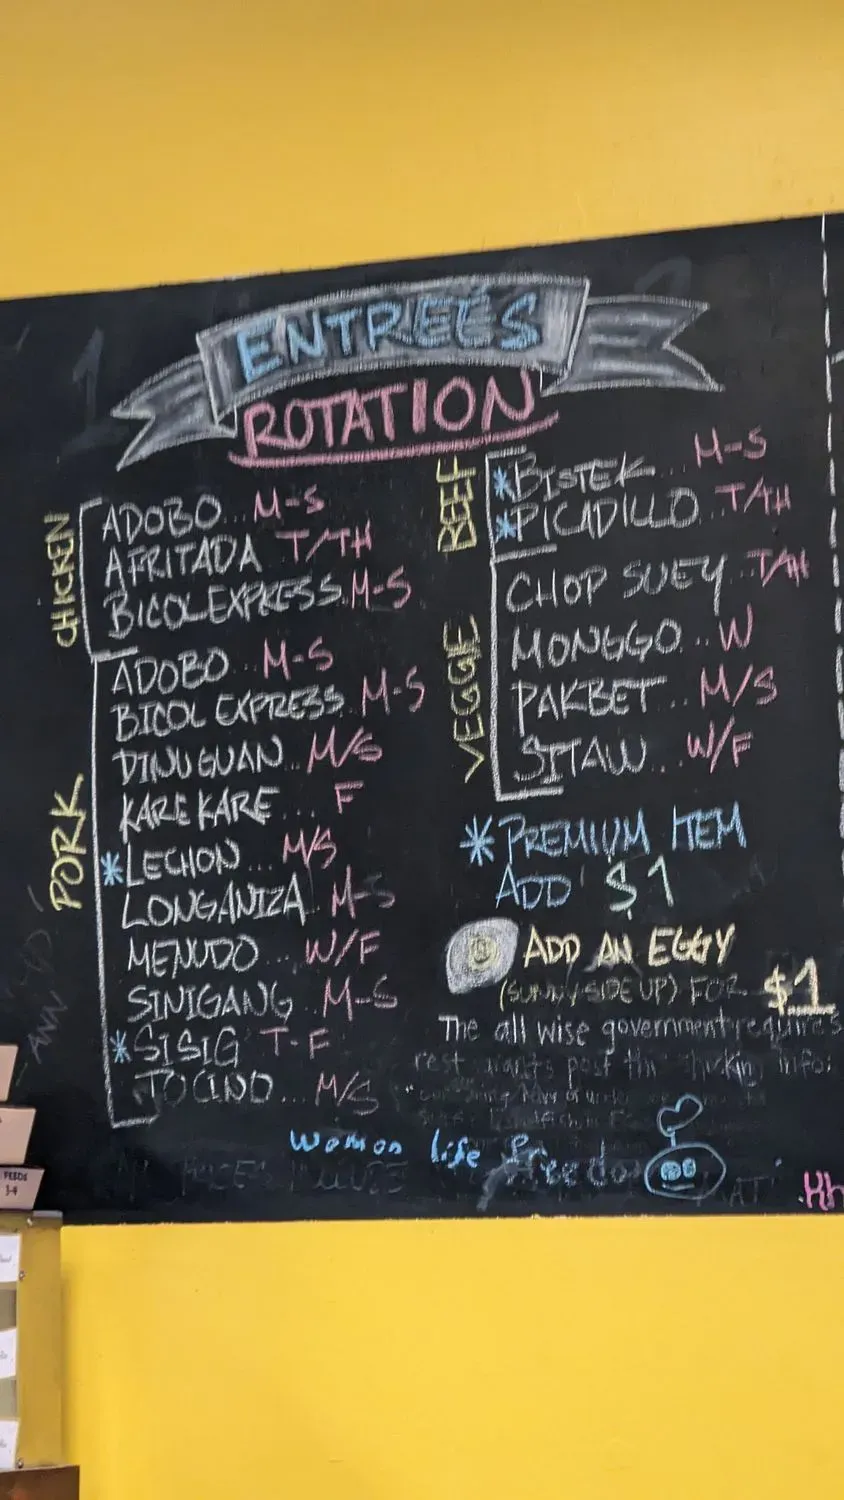 ENTREES
ROTATION
CHICKEN
ADOBO... M-S
AFRITADA T/TH
BICOL EXPRESS.. M-S
PORK
ADOBO... M-S
BICOL EXPRESS.. M-S
DINUGUAN.. M/S
KARE KARE.... F
*LECHON... M/S
LONGANIZA.. M-S
MENUDO... W/F
SINIGANG.. M-S
*SISIG T-F
TOCINO... M/S
BEEF
*BISTEK... M-S
*PICADILLO.. T/TH
VEGGIE
CHOP SUEY.. T/TH
MONGGO... W
PAKBET... M/S
SITAW... W/F
*PREMIUM ITEM
ADD $1
ADD AN EGGY
(SUNNY SIDE UP) FOR $1
The all wise government requires
post this info:
Woman life freedom
FEEDS
3-4